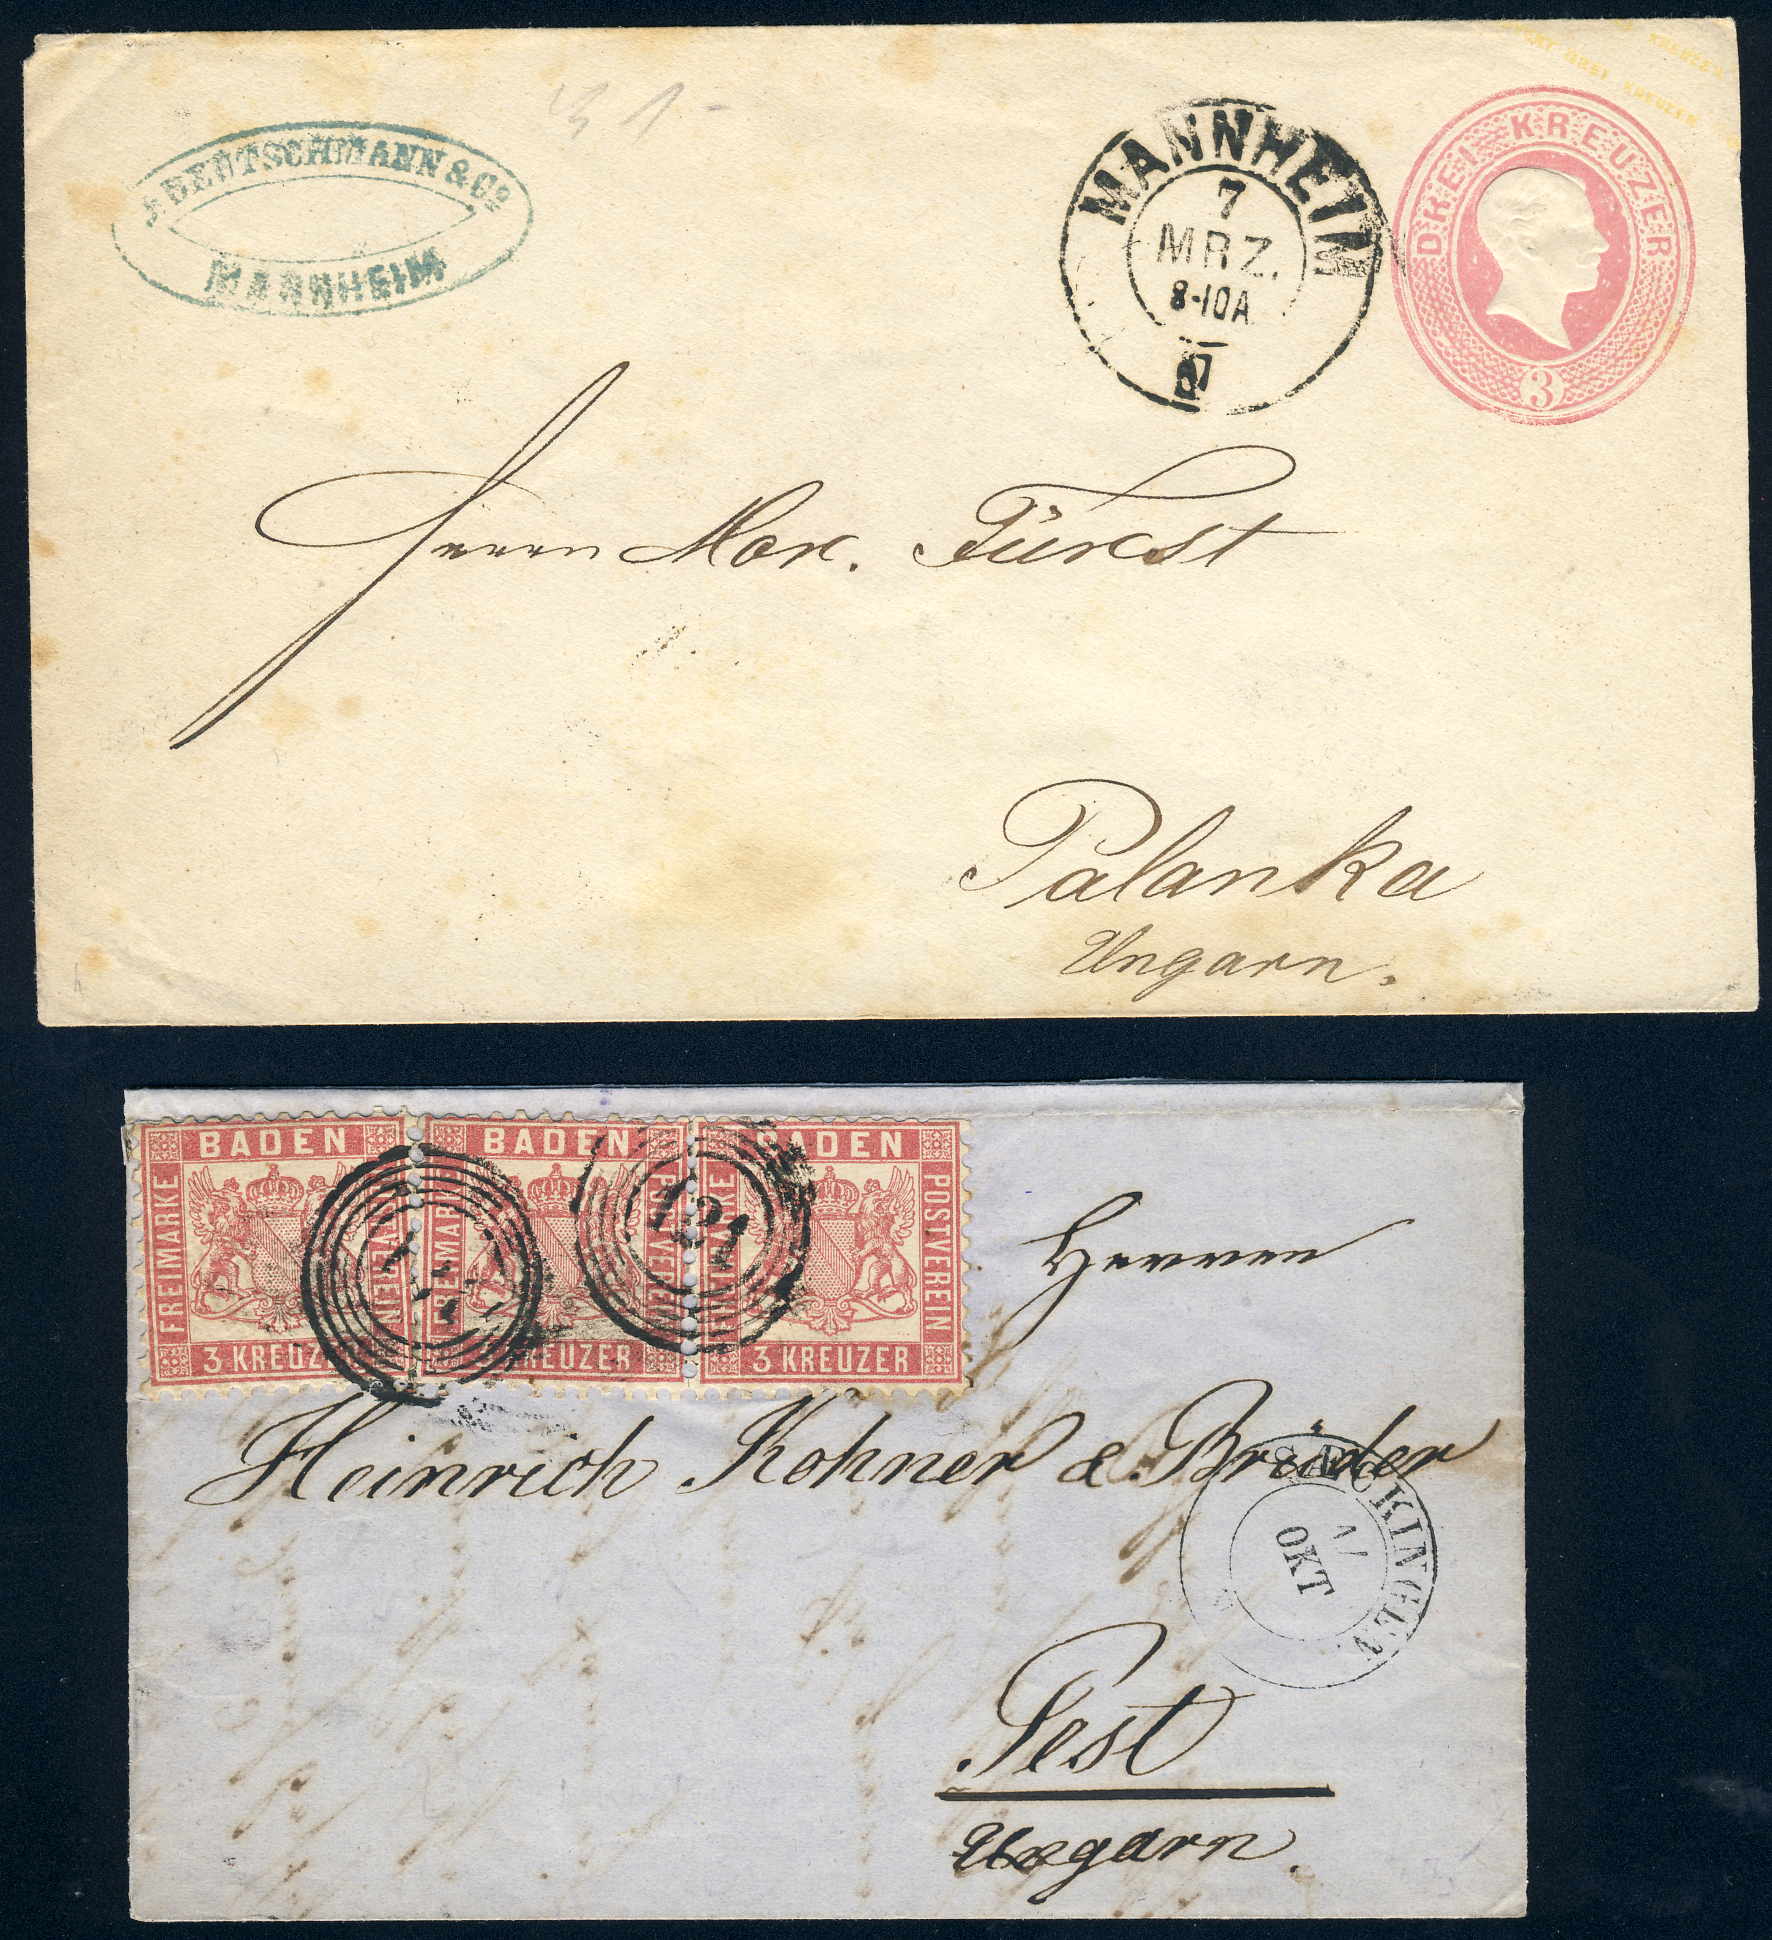 DEUTSCHMANN & Co
MANNHEIM
MANNHEIM
7
MRZ.
8-10A
67
DREI KREUZER
3
DREI KREUZER
Herrn Mor. Fürst
Palanka
Ungarn.
BADEN
FREIMARKE
POSTVEREIN
3 KREUZER
BADEN
FREIMARKE
POSTVEREIN
3 KREUZER
BADEN
FREIMARKE
POSTVEREIN
3 KREUZER
121
Herren
Heinrich Kohner & Brüder
SAECKINGEN
OKT
Pest
Ungarn.